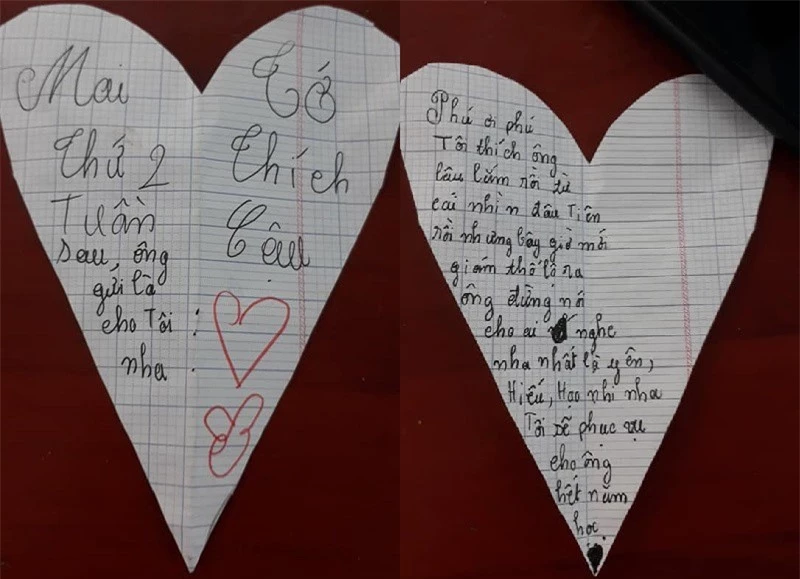 Mai
Thứ 2
Tuần
sau, ông
gửi là
cho Tôi :
nha .
Tớ
Thích
Cậu
Phú ơi phú
Tôi thích ông
lâu lắm rồi từ
cái nhìn đâu Tiên
rồi nhưng bây giờ mới
giám thổ lộ ra
ông đừng nó
cho ai nghe
nha nhất là yên,
Hiếu, Hạo nhi nha
Tôi sẽ phục vụ
cho ông
hết năm
học